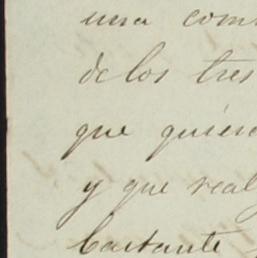 una com
de los tres
que quiere
y que real
bastante